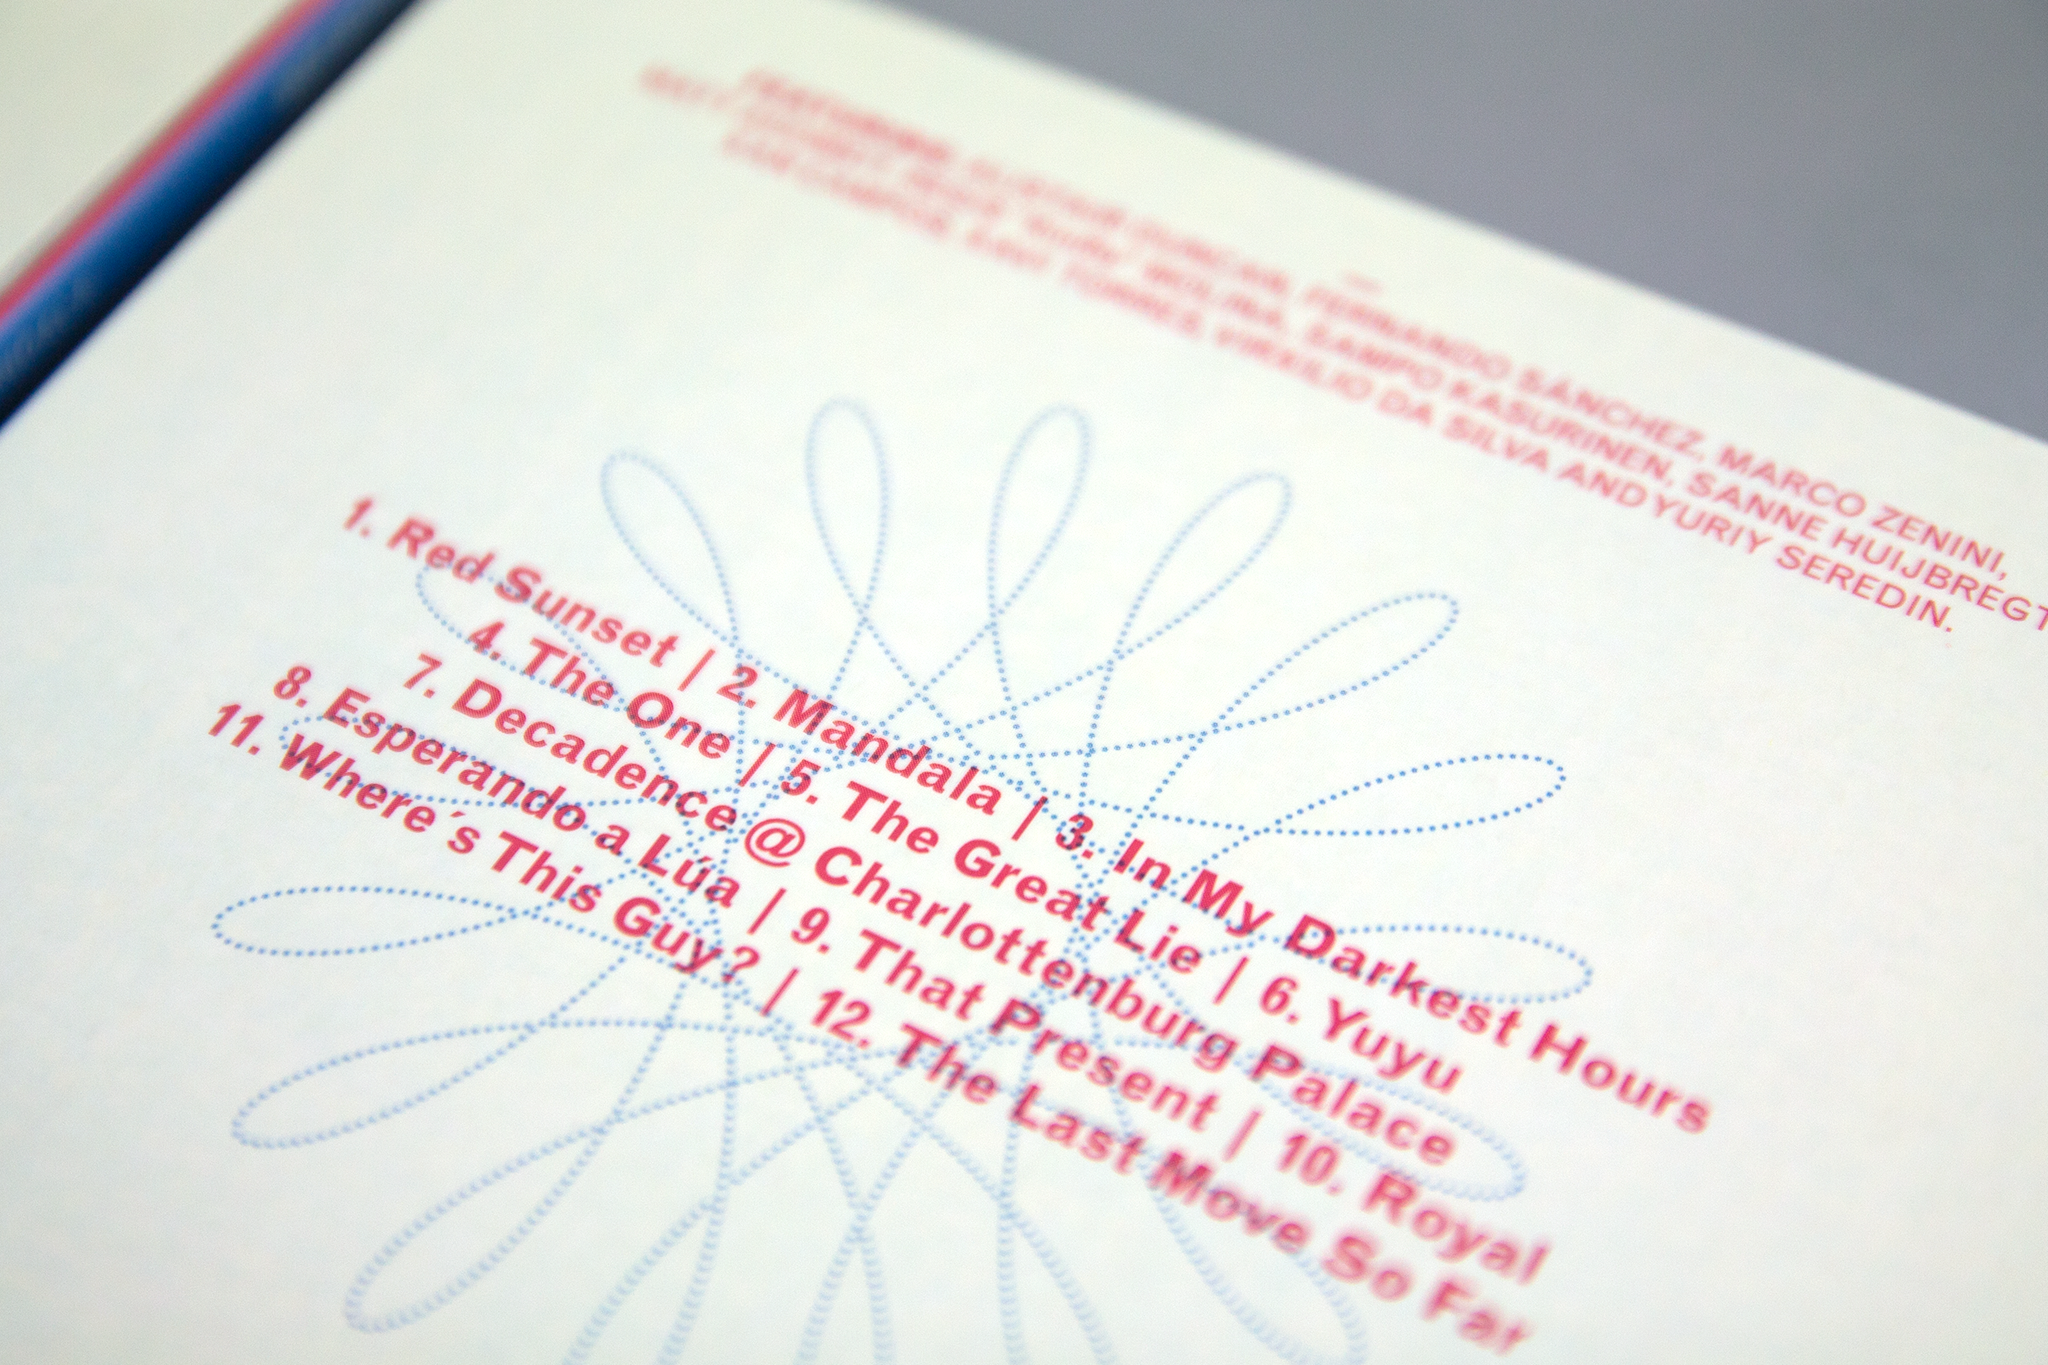 FEATURING: ALISTAIR DUNCAN, FERNANDO SÁNCHEZ, MARCO ZENINI,
MOLINA, SAMPO KASURINEN, SANNE HUIJBREGT
CAMPOS, XAVI TORRES, VIRXILIO DA SILVA AND YURIY SEREDIN.
1. Red Sunset | 2. Mandala | 3. In My Darkest Hours
4. The One | 5. The Great Lie | 6. Yuyu
7. Decadence @ Charlottenburg Palace
8. Esperando a Lúa | 9. That Present | 10. Royal
11. Where´s This Guy? | 12. The Last Move So Far